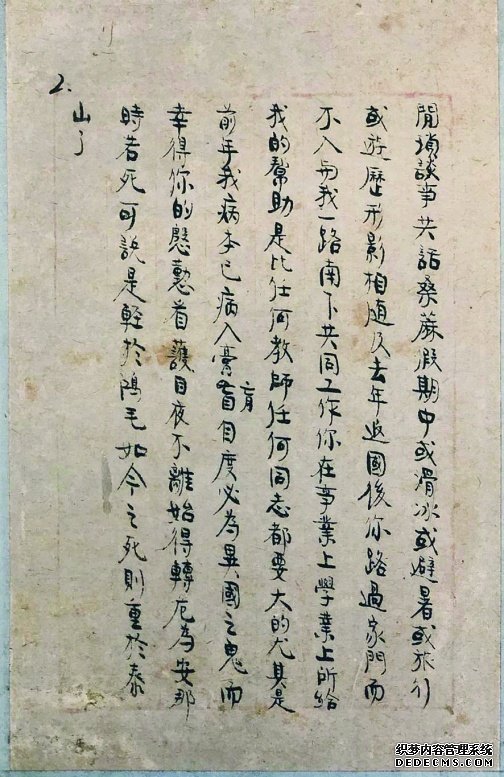 2.
閒瑣談事共話桑蔴假期中或滑冰或避暑或旅行
或遊歷形影相随及去年返國後你路過家門而
不入与我一路南下共同工作你在事業上學業上所給
我的幫助是比任何教師任何同志都要大的尤其是
前年我病本已病入膏肓自度必為異國之鬼而
幸得你的慇懃看護日夜不離始得轉危為安那
時若死可說是輕於鴻毛如今之死則重於泰
山了
织梦内容管理系统
DEDECMS.COM